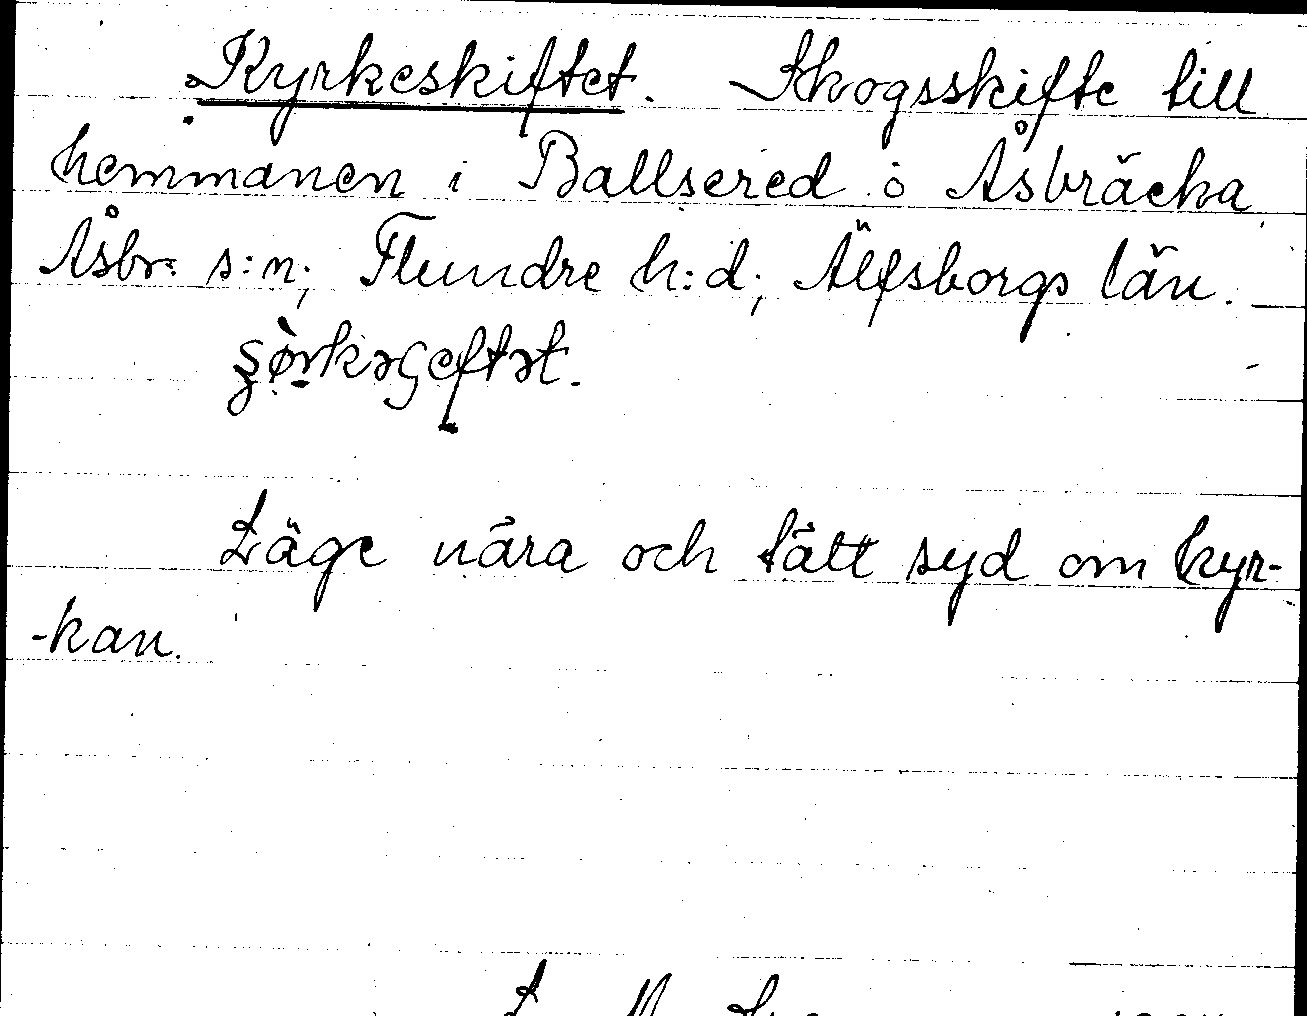 Kyrkeskiftet. Skogsskifte till
hemmanen i Ballsered o Åsbräcka
Åsbr: s:n; Flundre h:d; Älfsborgs län. —
Läge nära och tätt syd om kyr-
-kan.